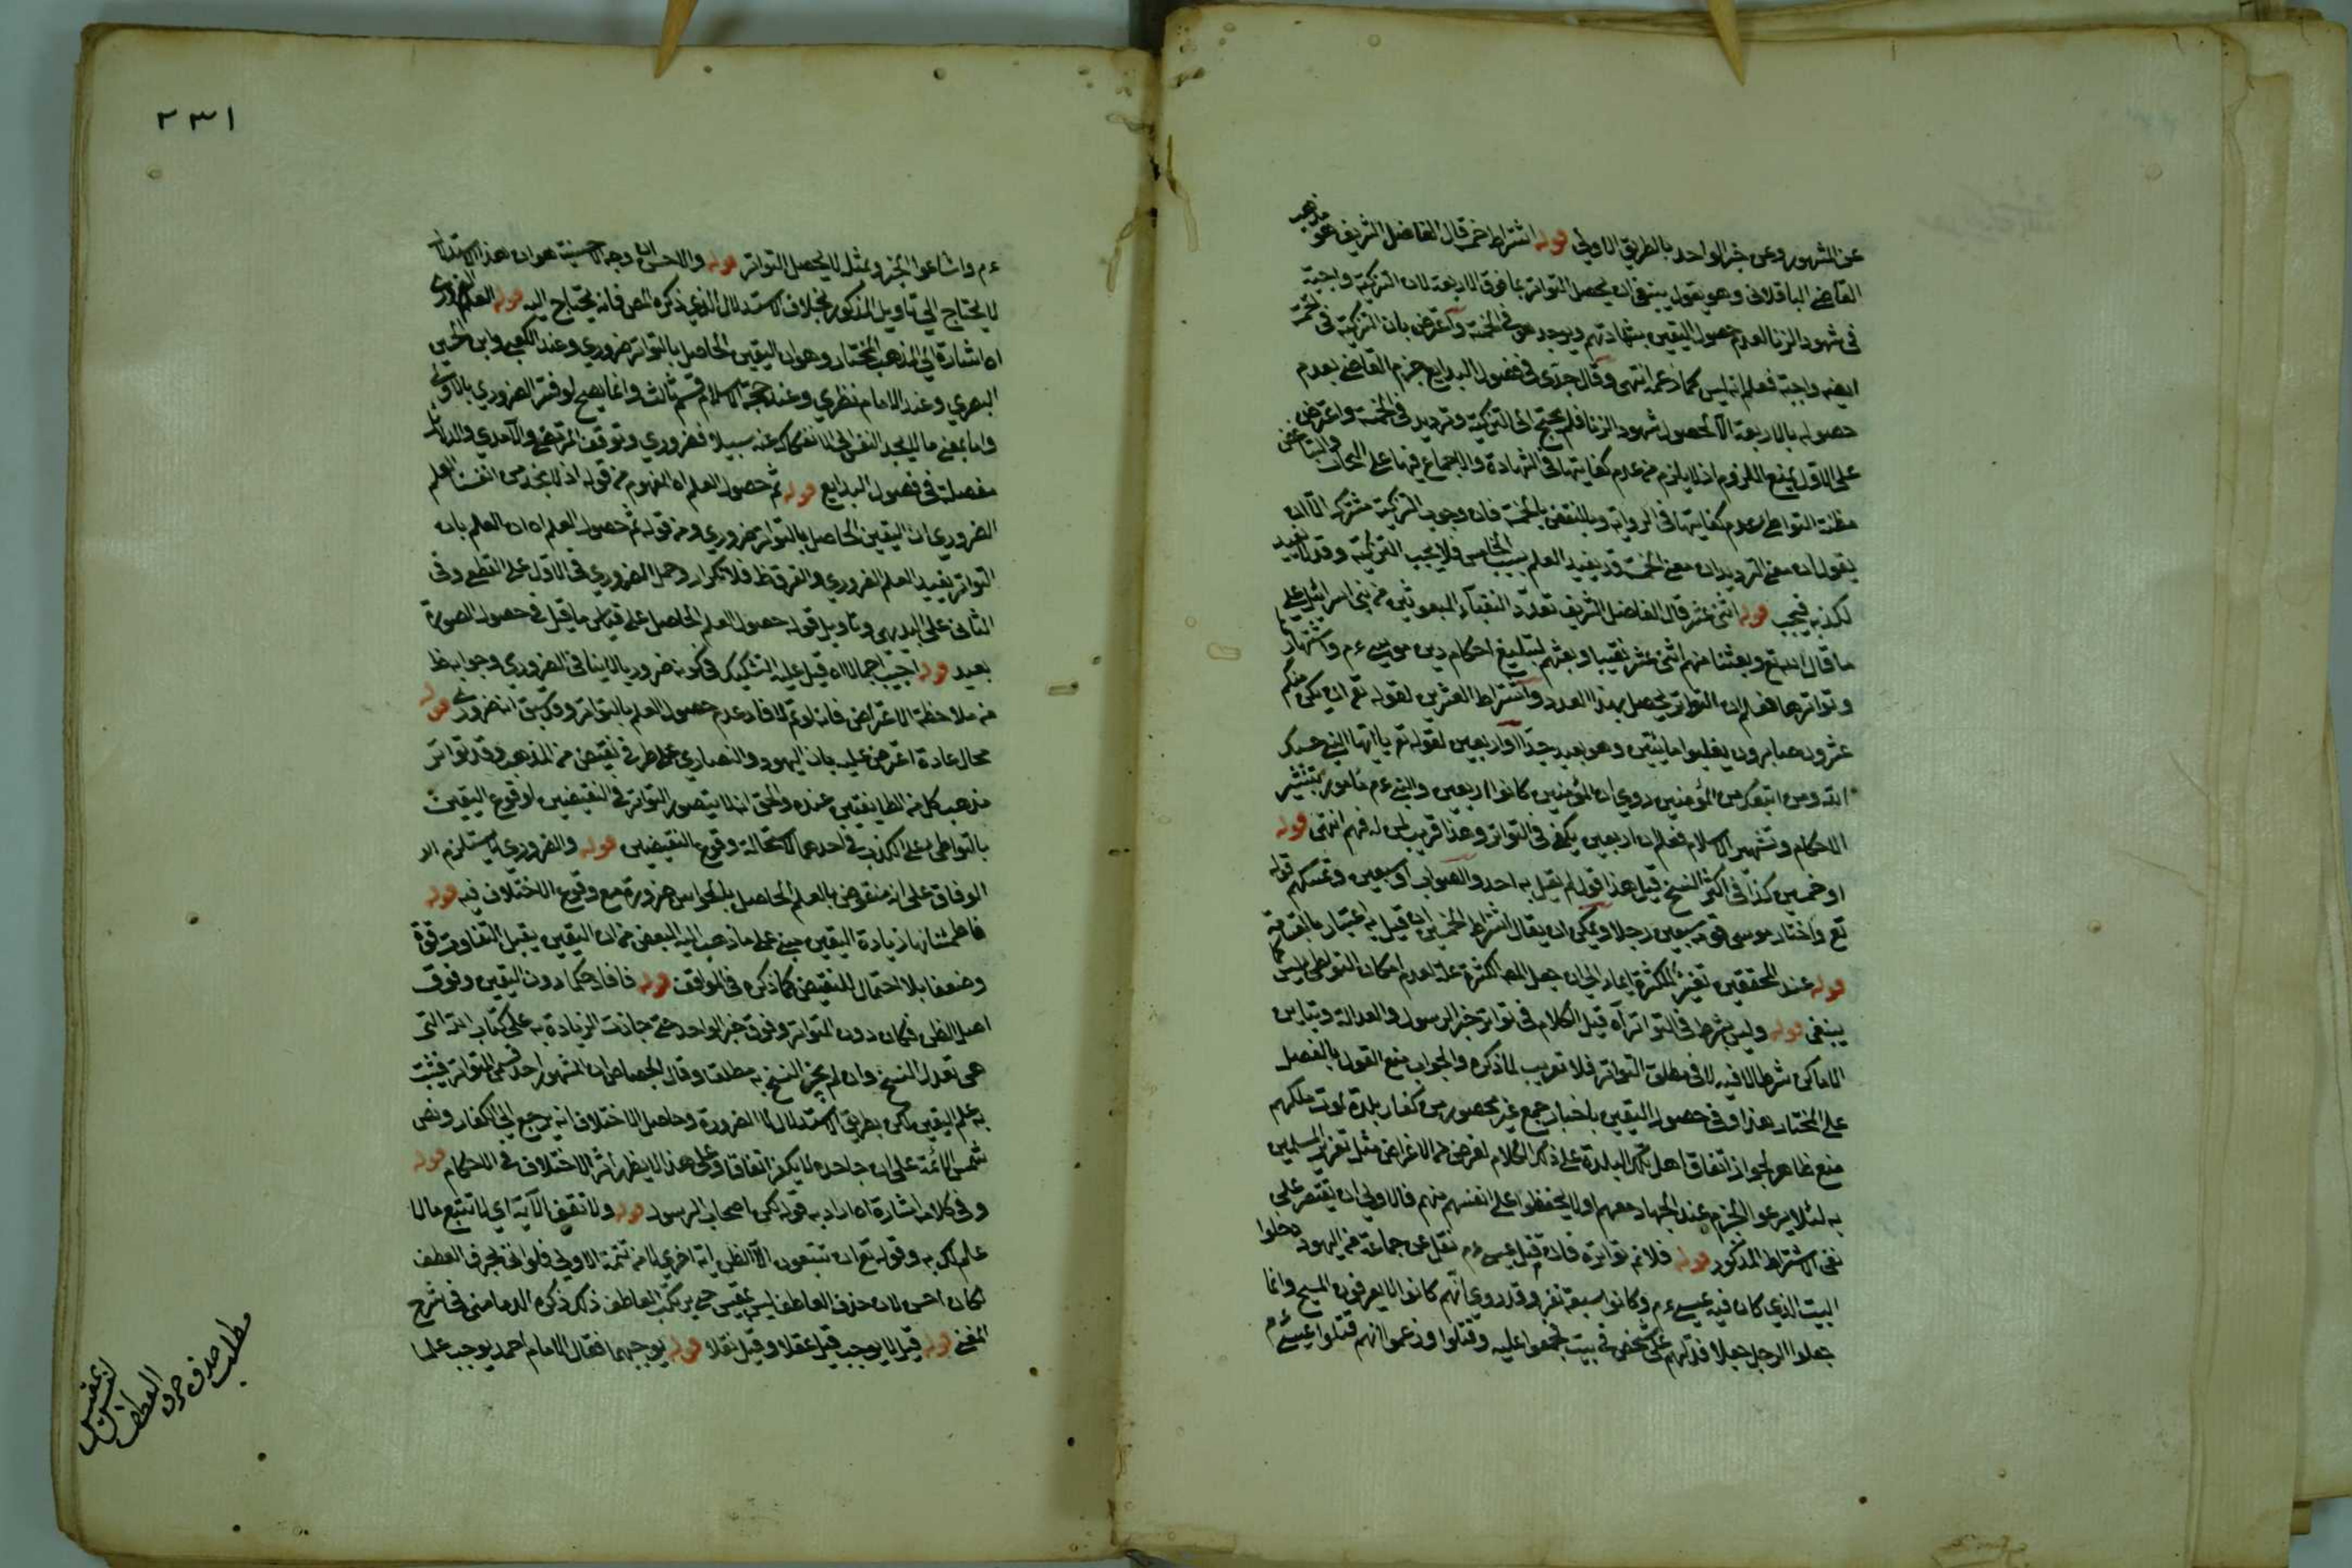 عن المشهور وعن خبر الواحد بالطريق الاولى قوله اشتراط خمسة قال الفاضل الشريف هو مذهب
القاضي الباقلاني وهو يقول ينبغي ان يحصل التواتر بما فوق الاربعة لان التزكية واجبة
في شهود الزنا لعدم حصول اليقين بشهادتهم ويوجد هو في الخمسة واعترض بان التزكية في الخمسة
ايضه واجبة فعلم انه ليس كما زعمه انتهى وقال جدي في فصول البدايع جزم القاضي بعدم
حصوله بالاربعة الا لحصول شهود الزنا فلم يحتج الى التزكية وتردد في الخمسة واعترض
على الاول بمنع الملزوم اذ لا يلزم من عدم كفايتها في الشهادة والاجتماع فيها على
مظنة التواطئ عدم كفايتها في الرواية وبالنقض بالخمسة فان وجوب التزكية مشترك الا ان
يقول ان معنى الترديد ان معنى الخمسة قد يفيد العلم بسبب الخامس فلا يجب التزكية وقد لا يفيد
لكذبه فيجب قوله اثنى عشر قال الفاضل الشريف تعدد النقباء المبعوثين من بني اسرائيل على
ما قال الله تع وبعثنا منهم اثنى عشر نقيبا وبعثهم لتبليغ احكام دين موسى ءم واشتهارها
وتواترها فعلم ان التواتر يحصل بهذا العدد واشتراط العشرين لقوله تع ان يكن منكم
عشرون صابرون يغلبوا مائتين وهو بعيد جدا او اربعين لقوله تع يا ايها النبي حسبك
الله ومن اتبعك من المؤمنين روي ان المؤمنين كانوا اربعين والنبي ءم مأمور بتنشير
الاحكام وتشهير الاسلام فعلم ان اربعين يكفي في التواتر وهذا قريب لمن له فهم انتهى قوله
او خمسين كذا في اكثر النسخ قيل هذا قول لم يقل به احد والصواب او سبعين وتمسكهم قوله
تع واختار موسى قومه سبعين رجلا ويمكن ان يقال اشتراط الخمسين قيل به اعتبار بالقسامة
قوله عند المحققين تفسير للكثرة ايماء الى ان جعل المص الكثرة علة لعدم امكان التواطئ ليس كما
ينبغي قوله وليس بشرط في التواتر اه قيل الكلام في تواتر خبر الرسول والعدالة وتباين
الاماكن شرط لا فيه لا في مطلق التواتر فلا تقريب لما ذكره والجواب منع القول بالفصل
على المختار هذا وفي حصول اليقين باخبار جمع غير محصور من كفار بلدة بموت ملكهم
منع ظاهر لجواز اتفاق اهل تلك البلدة على ذلك الكلام لغرض من الاغراض مثل تغرير المسلمين
به لئلا يرعوا الحزم عند الجهاد معهم اولا يحفظوا على انفسهم منهم فالاولى ان يقتصر على
نفي الاشتراط المذكور قوله فلانم تواتره فان قتل عيسى ءم نقل عن جماعة من اليهود دخلوا
البيت الذي كان فيه عيسى ءم وكانوا سبعة نفر وقد روي انهم كانوا لا يعرفون المسيح وانما
جعلوا الرجل جعلا فدلهم على شخص في بيت فهجموا عليه وقتلوا وزعموا انهم قتلوا عيسى ءم
٢٣١
ءم واشاعوا الخبر وبمثله لا يحصل التواتر قوله والاحسن ان وجه الاحسنية هو ان هذا الاستدلال
لا يحتاج الى تاويل المذكور بخلاف الاستدلال الذي ذكره المص فانه يحتاج اليه قوله العلم الضروري
اه اشارة الى المذهب المختار وهو ان اليقين الحاصل بالتواتر ضروري وعند الكعبي وابن الحسين
البصري وعند الامام نظري وعند حجة الاسلام قسم ثالث وانما يصح لو فسر الضروري بالاولى
واما بمعنى ما لا يجد النفس الى الانفكاك عنه سبيلا فضروري وتوقف المرتضى والآمدي والدلائل
مفصلة في فصول البدايع قوله ثم حصول العلم اه المفهوم من قوله اذ لا نجد من انفسنا العلم
الضروري ان اليقين الحاصل بالتواتر ضروري ومن قوله ثم حصول العلم اه ان العلم بان
التواتر يفيد العلم الضروري والفرق ظ فلا تكرار وحمل الضروري في الاول على القطع وفي
الثاني على البديهي وتاويل قوله حصول العلم الحاصل على قياس ما قيل في حصول الصورة
بعيد قوله اجيب اجمالا اه قيل عليه التشكيك في كونه ضروريا لا ينافي الضروري وجوابه ظ
من ملاحظة الاعتراض فانه لو تم لافاد عدم حصول العلم بالتواتر وقد سبق انه ضروري قوله
محال عادة اعترض عليه بان اليهود والنصارى على طرفي نقيض من المذهب وقد تواتر
مذهب كل من الطايفتين عنده والحق انه لا يتصور التواتر في النقيضين لوقوع اليقين
بالتواطئ على الكذب في احدهما لاستحالة وقوع النقيضين قوله والضروري لا يستلزم اه
الوفاق على انه منقوض بالعلم الحاصل بالحواس ضرورة مع وقوع الاختلاف فيه قوله
فاطمئنانها زيادة اليقين مبني على ما ذهب اليه البعض من ان اليقين يقبل التفاوت قوة
وضعفا بلا احتمال للنقيض كما ذكره في المواقف قوله فافاد حكما دون اليقين وفوق
اصل الظن فكان دون المتواتر وفوق خبر الواحد حتى جازت الزيادة به على كتاب الله التي
هي تعدل النسخ وان لم يجز النسخ به مطلقا وقال الجصاص ان المشهور احد قسمي المتواتر فيثبت
به علم اليقين لكن بطريق الاستدلال لا الضرورة وحاصل الاختلاف انه يرجع الى الكفار ونص
شمس الائمة على ان جاحده لا يكفر اتفاقا وعلى هذا لا يظهر اثر الاختلاف في الاحكام قوله
وفي كلامه اشارة اه اراد به قوله لكن اصحاب الرسول قوله ولا تقف الآية اي لا تتبع ما لا
علم لك به وقوله تع ان تتبعون الا الظن اية اخرى لا من تتمة الاولى فلو اتى بحرف العطف
لكان احسن لان حذف العاطف ليس بمقيس حتى يرتكب العاطف ذلك ذكره الدماميني في شرح
المغني قوله قيل لا يوجب قيل عقلا وقيل نقلا قوله يوجبهما فقال الامام احمد يوجب علما
مطلب حذف حرف
العطف
ليس بمقيس